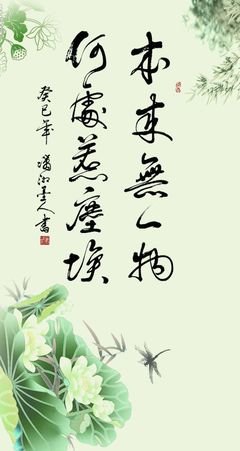 本来無一物
何處惹塵埃
癸巳年
書